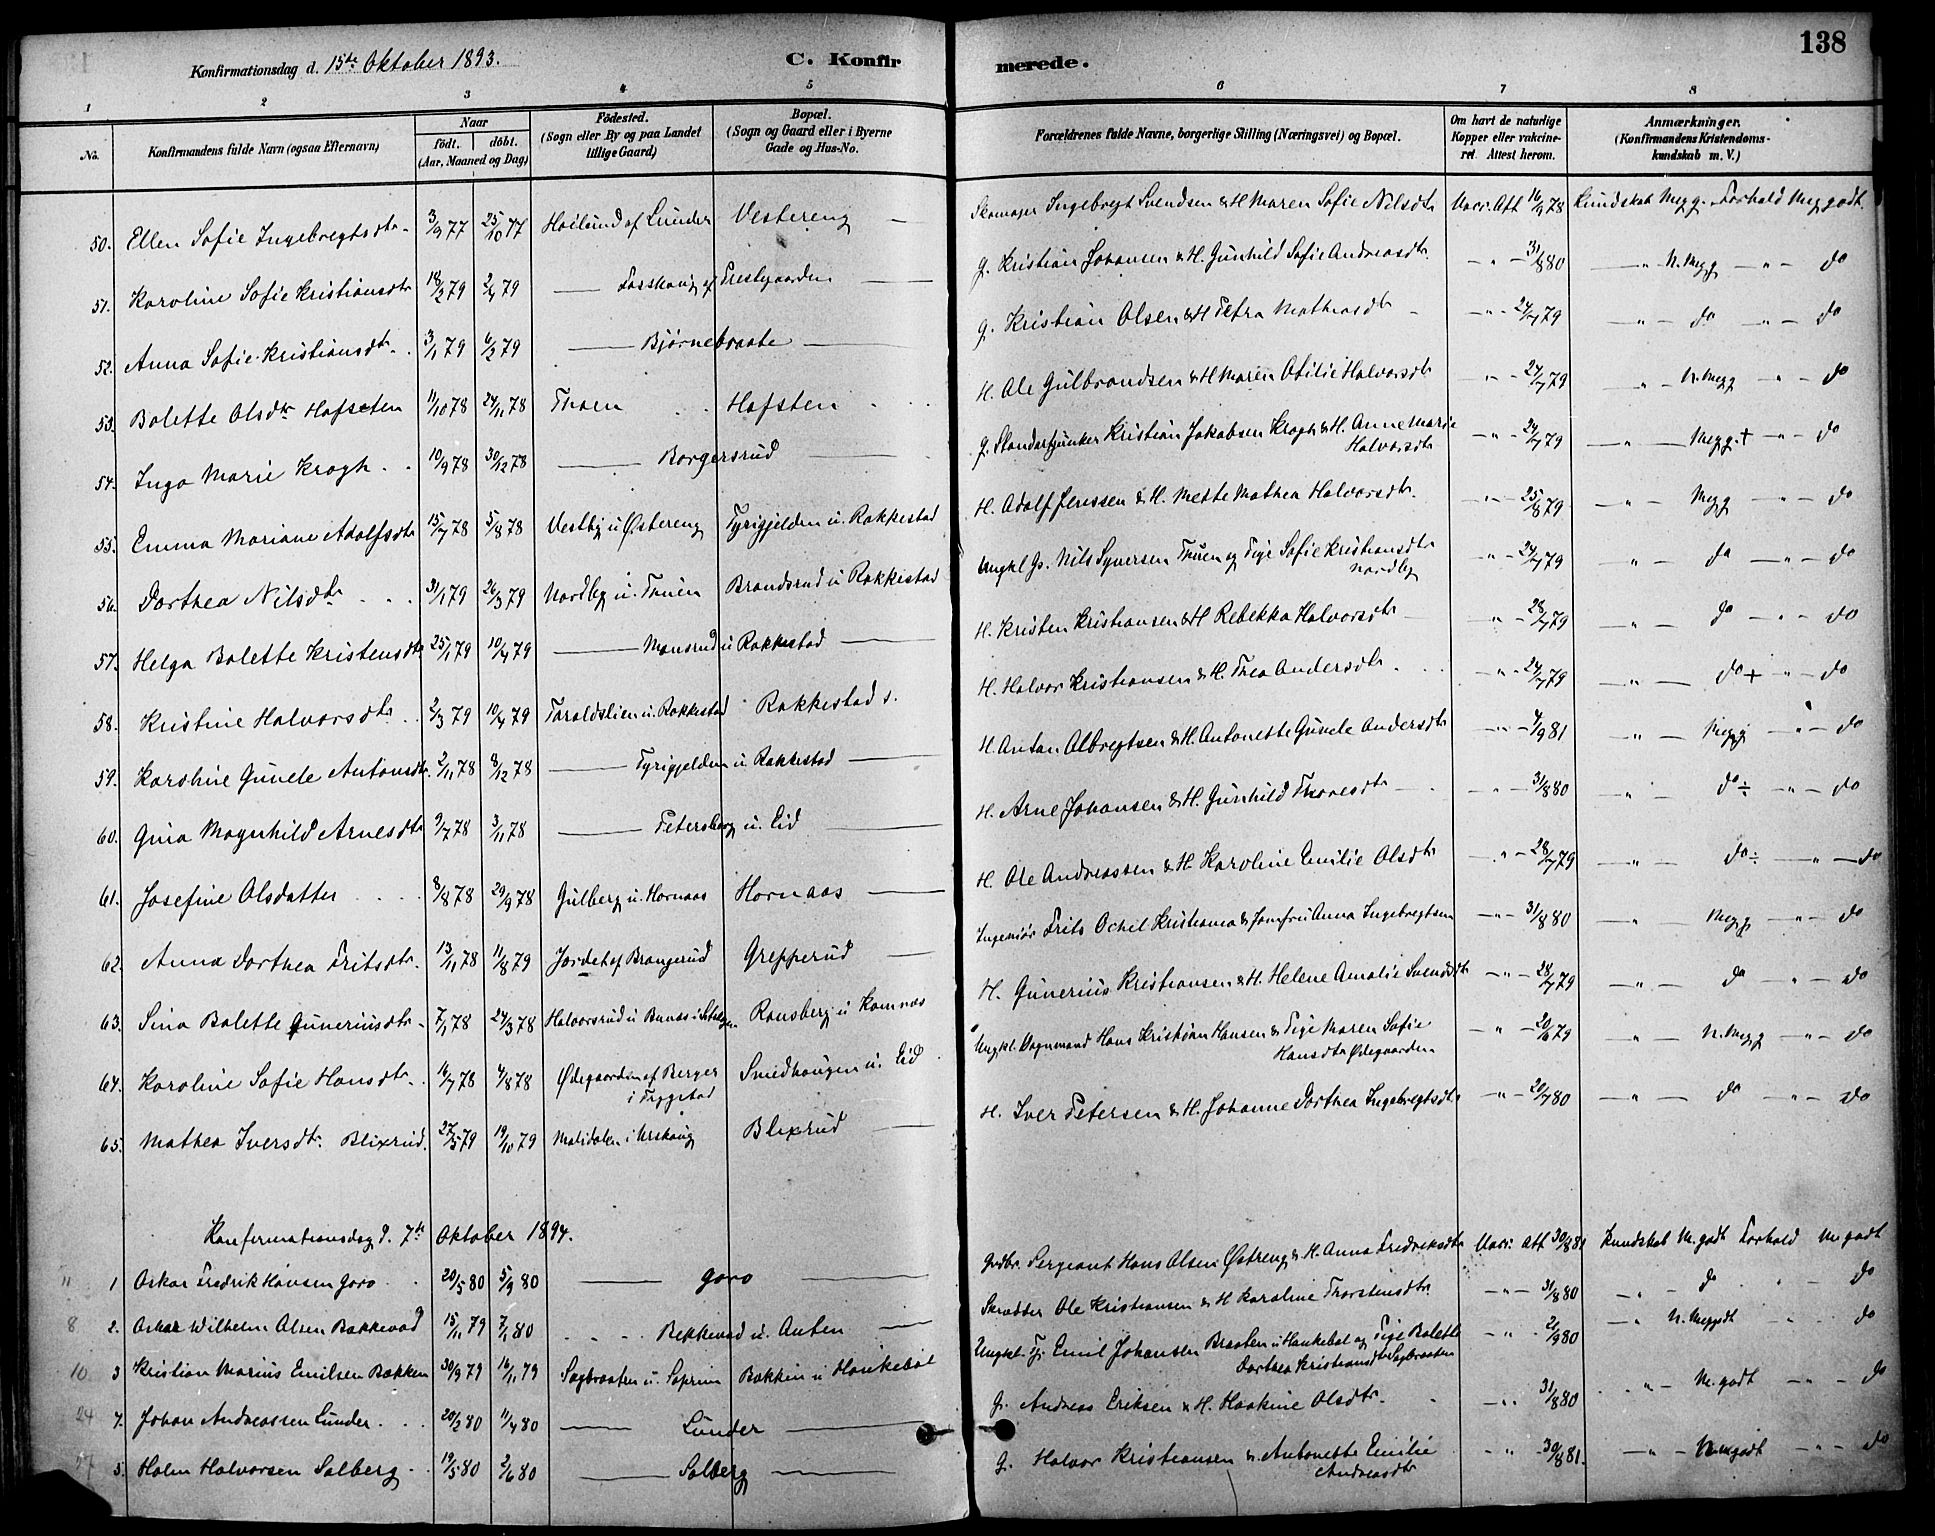 138
Konfirmationsdag d. 15de Oktober 1893. C. Konfirmerede.
1 2 3 4 5 6 7 8
No. Konfirmandens fulde Navn (ogsaa Efternavn) Naar födt. döbt. (Aar, Maaned og Dag) Födested. (Sogn eller By og paa Landet tillige Gaard) Bopæl. (Sogn og Gaard eller i Byerne Gade og Hus-No. Forældrenes fulde Navne, borgerlige Stilling (Næringsvei) og Bopæl. Om havt de naturlige Kopper eller vakcineret. Attest herom. Anmærkninger. (Konfirmandens Kristendomskundskab m. V.)
50. Ellen Sofie Ingebregtsdtr 3/9 77 25/10 77 Høilund af Lunder Vestereng — Skomager Ingebregt Svendsen & H Maren Sofie Nilsdtr Vacc. Att 16/9 78 Kundskab Meg g. Forhold Meg godt.
51. Karoline Sofie Kristiansdtr 18/2 79 2/4 79 — Fosshaug af Prestgaarden — G. Kristian Johansen & H. Gunhild Sofie Andreasdtr. — " — 31/8 80 — " N. Meg g — " — do
52. Anna Sofie Kristiansdtr. 3/1 79 6/2 79 — Bjørnebraate — G. Kristian Olsen & H Petra Mathiasdtr — " — 24/7 79 — " — do — " — do
53. Bolette Olsdtr Hofsten 11/10 78 24/11 78 Thoen Hofsten H. Ole Gulbrandsen & H Maren Otilie Halvorsdtr — " — 24/7 79 — " — N. Meg g — " — do
54. Inga Marie Krogh. 10/9 78 30/12 78 — Borgersrud — G. Standartjunker Kristian Jakobsen Krogh & H. Anne Marie Halvorsdtr — " — 24/7 79 — " — Meg g. + — " — do
55. Emma Mariane Adolfsdtr 15/7 78 5/8 78 Vestby u Østereng Tyrigjelden u. Rakkestad H. Adolf Jenssen & H. Mette Mathea Halvorsdtr. — " — 25/8 79 — " — Meg g — " — do
56. Dorthea Nilsdtr 31/1 79 26/3 79 Nordby u. Thuen Brandsrud u Rakkestad Ungkl G. Nils Syversen Thuen og Pige Sofie Kristiansdtr Nordby — " — 24/7 79 — " — do — " — do
57. Helga Bolette Kristensdtr 25/1 79 10/4 79 — Monsrud u Rakkestad — H. Kristen Kristiansen & H Rebekka Halvorsdtr — " — 28/7 79 — " — do — " — do
58. Kristine Halvorsdtr. 2/3 79 10/4 79 Taraldslien u. Rakkestad Rakkestad s. H. Halvor Kristiansen & H. Thea Andersdtr. — " — 24/7 79 — " — do + — " — do
59. Karoline Gunele Antonsdtr. 2/11 78 8/12 78 — Tyrigjelden u. Rakkestad — H. Anton Albregtsen & H. Antonette Gunele Andersdtr — " — 4/9 81 — " — Meg g — " — do
60. Gina Magnhild Arnesdtr 9/7 78 3/11 78 — Petersberg u. Eid — H. Arne Johansen & H. Gunhild Thoresdtr — " — 31/8 80 — " — do ÷ — " — do
61. Josefine Olsdatter 8/8 78 29/9 78 Gulberg u. Hornaas Hornaas — H. Ole Andreassen & H. Karoline Emilie Olsdtr — " — 28/7 79 — " — do ÷ — " — do
62. Anna Dorthea Fritsdtr. 13/11 78 11/8 79 Jordet af Brangerud Grepperud — Ingeniør Frits Kristiania & Jomfru Anna Ingebregtsen — " — 31/8 80 — " — Meg g — " — do
63. Sina Bolette Guneriusdtr. 7/1 78 24/3 78 Halvorsrud u Ransberg u Komnæs H. Gunerius Kristiansen & H. Helene Amalie Svendsdtr — " — 28/7 79 — " — do — " — do
64. Karoline Sofie Hansdtr. 16/7 78 4/8 78 Ødegaarden af Berger i Trygstad Smedhaugen u. Eid Ungkl. Vognmand Hans Kristian Hansen & Pige Maren Sofie Hansdtr Ødegaarden — " — 20/6 79 — " — N. Meg g — " — do
65. Mathea Iversdtr. Blixrud. 27/5 79 19/10 79 Malidalen i Urskoug Blixrud — H. Iver Petersen & H. Johanne Dorthea Ingebregtsdtr — " — 20/7 80 — " — do — " — do
Konfirmationsdag d. 7de Oktober 1894.
11 1 Oskar Fredrik Hansen Goro 20/5 80 5/9 80 — Goro — Grdbr. Sergeant Hans Olsen Østreng & H. Anna Fredriksdtr Vacc. Att 30/8 81 Kundskab M. godt Forhold M godt
8 2. Oskar Wilhelm Olsen Bækkevad 15/11 79 7/1 80 Bekkevad u. Auten — Skrædder Ole Kristiansen & H Karoline Thorstensdtr. — " — 31/8 80 — " — do " — do
10 3 Kristian Marius Emilsen Bækken 30/9 79 16/11 79 Sagbraaten u. Soprim Bækken u Haukebøl Ungkl. Tj. Emil Johansen Braaten u Haukebøl og Pige Bolette Dorthea Kristiansdtr Sagbraaten — " 21/9 80 — " N. Meg godt " do
24 4. Johan Andreassen Lunder. 20/2 80 11/4 80 — Lunder — G. Andreas Eriksen & H. Haakine Olsdtr. — " 31/8 80 " — M. godt — " — do
5. Holm Halvorsen Solberg 19/5 80 2/6 80 — Solberg — G. Halvor Kristiansen & Antonette Emilie Andreasdtr — " — 30/8 81. — " — N. m godt — " — do